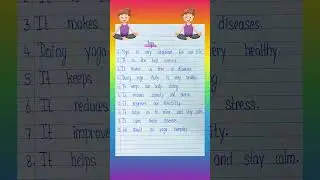 Yoga
1. Yoga is very important for our life.
2. It is the best exercise.
3. It makes us free of diseases.
4. Doing yoga daily is very healthy.
5. It keeps our body strong.
6. It reduces anxiety and stress.
7. It improves our flexibility.
8. It helps us to relax and stay calm.
9. It cures many diseases.
10. We should do yoga everyday.
3. It makes diseases.
4. Doing yoga very healthy
5. It keeps
6. It reduces stress.
7. It improve
8. It helps and stay calm.